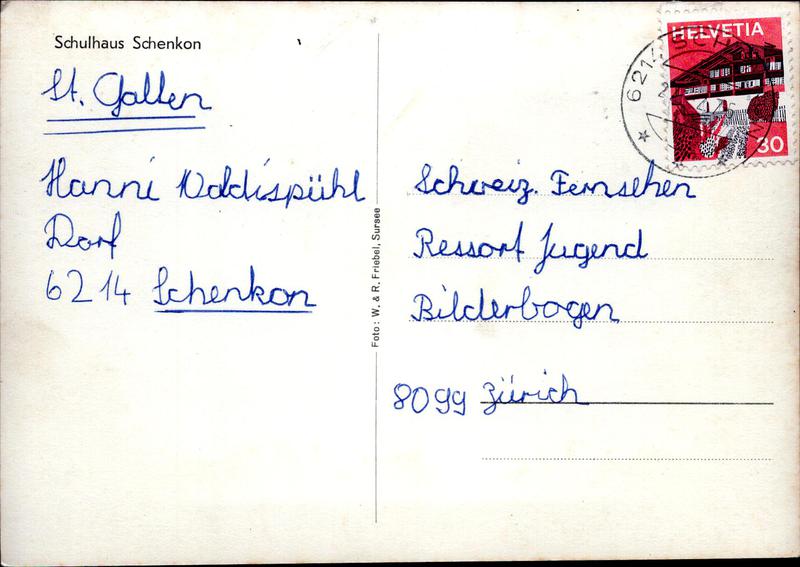 Schulhaus Schenkon
St. Gallen
Hanni Waldispühl
Dorf
6214 Schenkon
Foto: W. & R. Friebel, Sursee
HELVETIA
30
6214 SCH
Schweiz. Fernsehen
Ressort Jugend
Bilderbogen
8099 Zürich